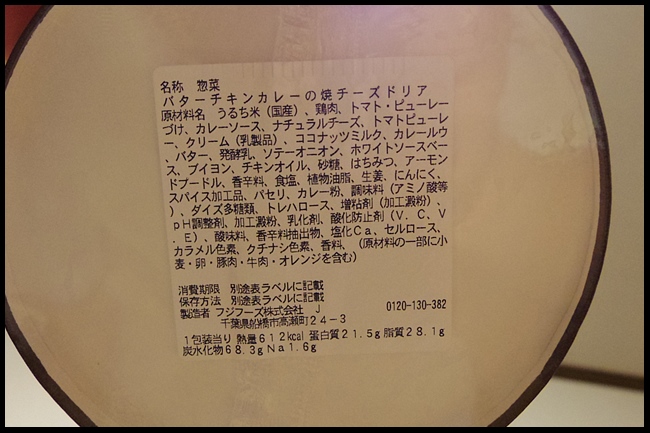 名称 惣菜
バターチキンカレーの焼チーズドリア
原材料名 うるち米（国産）、鶏肉、トマト・ピューレー
づけ、カレーソース、ナチュラルチーズ、トマトピューレ
ー、クリーム（乳製品）、ココナッツミルク、カレールウ
、バター、発酵乳、ソテーオニオン、ホワイトソースベー
ス、ブイヨン、チキンオイル、砂糖、はちみつ、アーモン
ドプードル、香辛料、食塩、植物油脂、生姜、にんにく、
スパイス加工品、パセリ、カレー粉、調味料（アミノ酸等
）、ダイズ多糖類、トレハロース、増粘剤（加工澱粉）、
pH調整剤、加工澱粉、乳化剤、酸化防止剤（V．C、V
．E）、酸味料、香辛料抽出物、塩化Ca、セルロース、
カラメル色素、クチナシ色素、香料、（原材料の一部に小
麦・卵・豚肉・牛肉・オレンジを含む）
消費期限 別途表ラベルに記載
保存方法 別途表ラベルに記載
製造者 フジフーズ株式会社 J 0120-130-382
千葉県船橋市高瀬町24－3
1包装当り 熱量612kcal 蛋白質21.5g 脂質28.1g
炭水化物68.3g Na1.6g